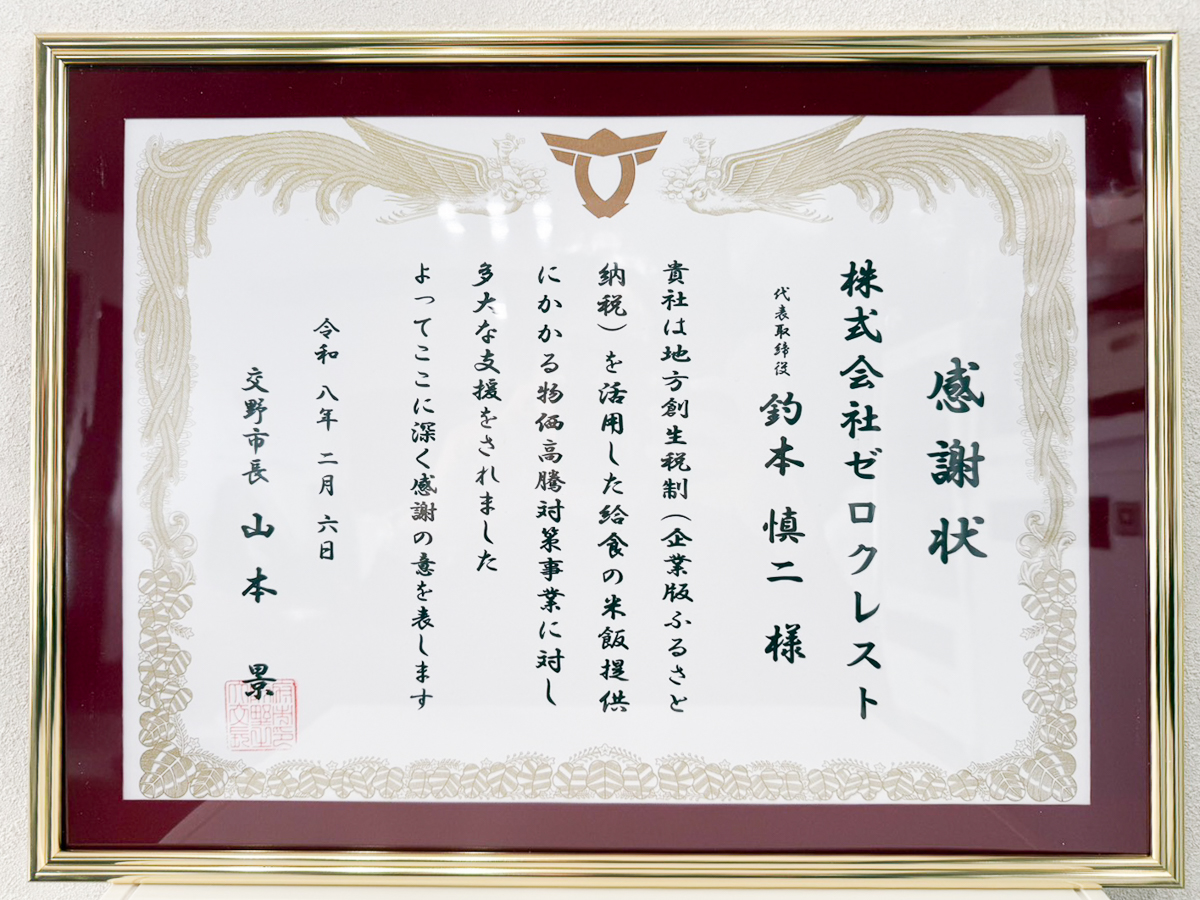 感謝状
株式会社ゼロクレスト
代表取締役 釣本 慎二 様
貴社は地方創生税制（企業版ふるさと
納税）を活用した給食の米飯提供
にかかる物価高騰対策事業に対し
多大な支援をされました
よってここに深く感謝の意を表します
令和 八年 二月 六日
交野市長 山本 景